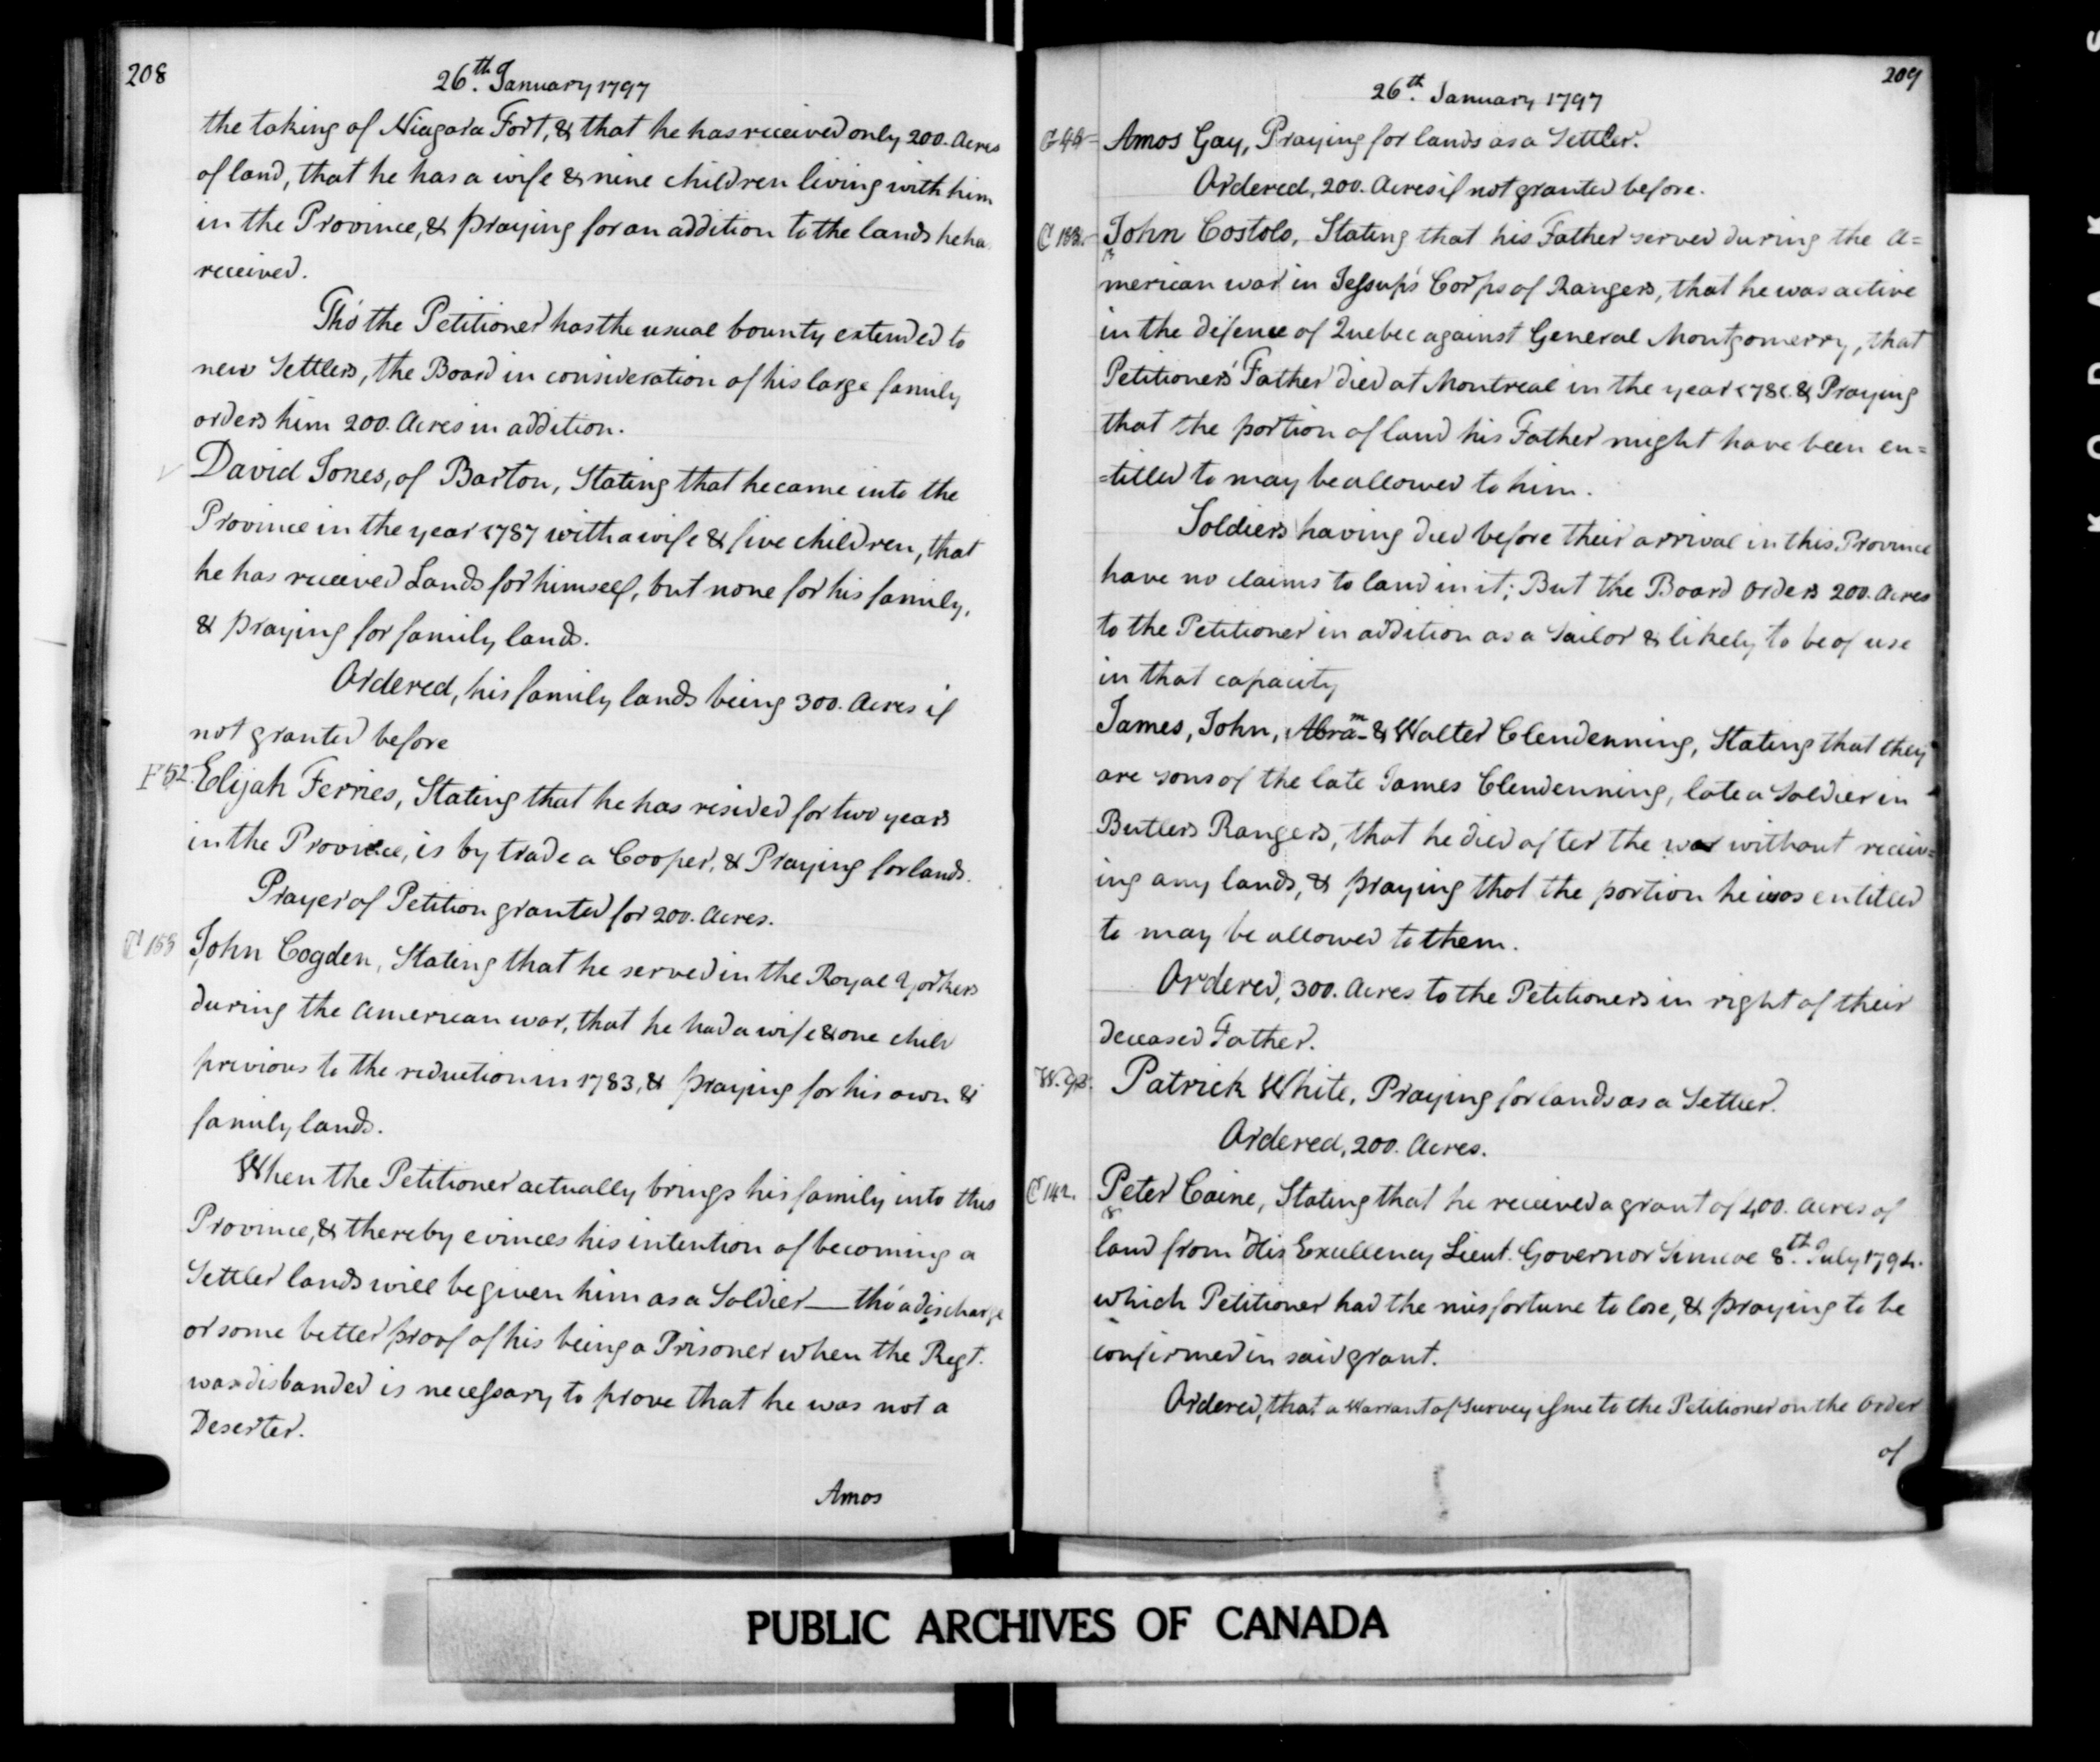 208
26th. January 1797
the taking of Niagara Fort, & that he has received only 200. Acres
of land, that he has a wife & nine children living with him
in the Province, & praying for an addition to the lands he ha
received.
Tho' the Petitioner has the usual bounty extended to
new Settlers, the Board in consideration of his large family
orders him 200. Acres in addition.
David Jones, of Barton, Stating that he came into the
Province in the year 1787 with a wife & five children, that
he has received Lands for himself, but none for his family,
& praying for family lands.
Ordered, his family lands being 300. Acres if
not granted before
F 52. Elijah Ferries, Stating that he has resided for two years
in the Province, is by trade a Cooper, & Praying for lands.
Prayer of Petition granted for 200. Acres.
John Cogden, Stating that he served in the Royal Yorkers
during the American war, that he had a wife & one child
previous to the reduction in 1783, & praying for his own &
family lands.
When the Petitioner actually brings his family into this
Province, & thereby evinces his intention of becoming a
Settler lands will be given him as a Soldier — tho' a discharge
or some better proof of his being a Prisoner when the Regt.
was disbanded is necessary to prove that he was not a
Deserter.
Amos
209
26th. January 1797
Amos Gay, Praying for lands as a Settler.
Ordered, 200. Acres if not granted before.
John Costolo, Stating that his Father served during the A=
merican war in Jessup's Corps of Rangers, that he was active
in the defence of Quebec against General Montgomerry, that
Petitioners' Father died at Montreal in the year & Praying
that the portion of land his Father might have been en=
=titled to may be allowed to him.
Soldiers having died before their arrival in this Province
have no claims to land in it; But the Board orders 200. Acres
to the Petitioner in addition as a Sailor & likely to be of use
in that capacity
James, John, Abram & Walter Clendenning, Stating that they
are sons of the late James Clendenning, late a Soldier in
Butlers Rangers, that he died after the war without receiv=
ing any lands, & praying that the portion he was entitled
to may be allowed to them.
Ordered, 300. Acres to the Petitioners in right of their
deceased Father.
Patrick White, Praying for lands as a Settler.
Ordered, 200. Acres.
C 142. Peter Caine, Stating that he received a grant of 400. acres of
land from His Excellency Lieut. Governor Simcoe 8th. July 1794.
which Petitioner had the misfortune to lose, & praying to be
confirmed in said grant.
Ordered, that a Warrant of Survey issue to the Petitioner on the Order
of
PUBLIC ARCHIVES OF CANADA